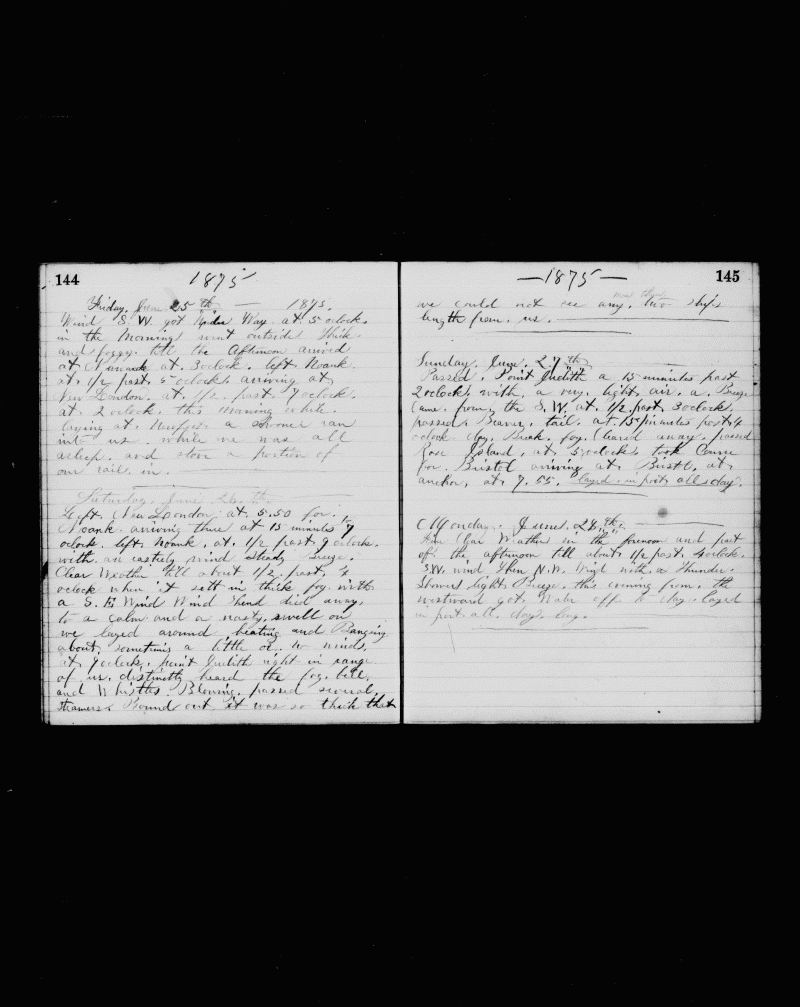 144
1875
Friday, June 25th — 1875.
Wind S. W. got Under Way at 5 oclock,
in the Morning went outside thick
and foggy till the Afternoon arrived
at at 3 oclock. left Noank
at 1/2 past 5 oclock arriving at
New London at 1/2 past 7 oclock
at 2 oclock this morning while
laying at a Schooner ran
into us while we was all
asleep and stove a portion of
our rail in.
Saturday, June 26th
Left New London at 5.50 for
Noank arriving there at 15 minutes to 7
oclock left Noank at 1/2 past 9 oclock
with an easterly wind steady Breeze.
Clear Weather till about 1/2 past 4
oclock when it sett in thick fog with
a S. E Wind Wind died away
to a calm and a nasty swell on
we layed around beating and Banging
about sometimes a little of winds
at 9 oclock, point Judith right in range
of us, distinctly heard the fog bell
and Whistles Blowing, passed several
steamers Bound out it was so thick that
145
—1875—
we could not see any more than two ship's
length from us.
Sunday, June 27th
Passed Point Judith a 15 minutes past
2 oclock with a very light air. a Breeze
Came from the S. W. at 1/2 past 3 oclock
passed Beaver tail at 15 minutes past 4
oclock day Break fog Cleared away passed
Rose Island at 5 oclock took Course
for Bristol arriving at Bristol at
anchor, at 7.55. layed in port all day.
Monday, June 28th
Fine Clear Weather in the forenoon and part
of the afternoon till about 1/2 past 4 oclock.
S.W. wind then N.W. Wind with a Thunder
Shower light Breeze this evening from the
westward got Water off to day layed
in port all day